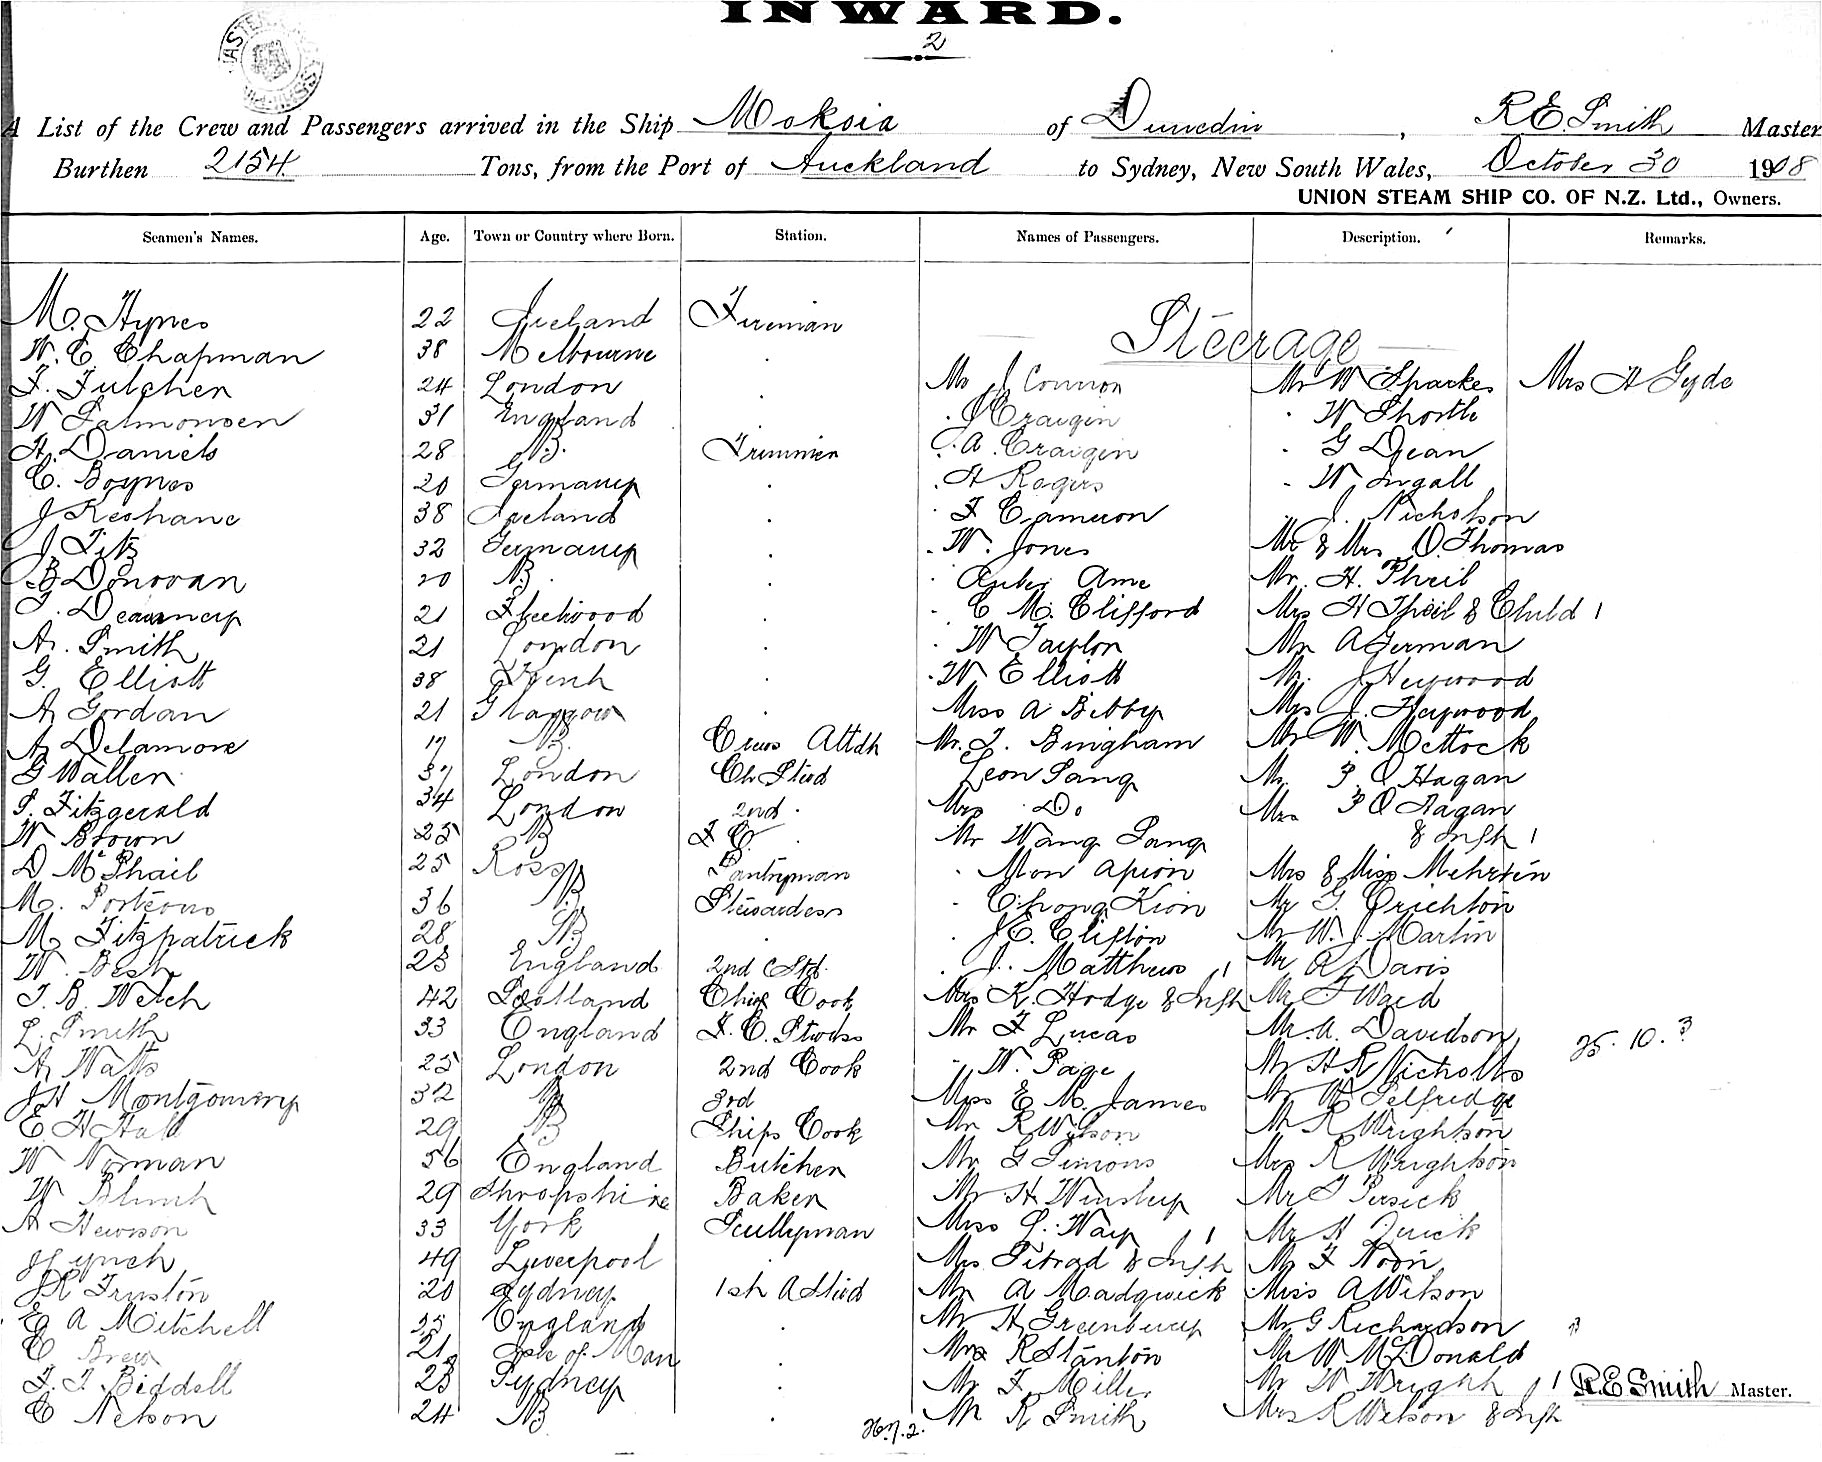 INWARD.
2
A List of the Crew and Passengers arrived in the Ship Mokoia of Dunedin, R E Smith Master
Burthen 2154 Tons, from the Port of Auckland to Sydney, New South Wales, October 30 1908
UNION STEAM SHIP CO. OF N.Z. Ltd., Owners.
Seamen's Names. Age. Town or Country where Born. Station. Names of Passengers. Description. Remarks.
Steerage
M. Hynes 22 Ireland Fireman
W. E. Chapman 38 Melbourne .
F. Fulcher 24 London . Mr J Connon Mr W Sparkes Mrs H Gyde
W Salmonsen 31 England . . J Craigin . W Shortle
H. Daniels 28 NB. Trimmer . A. Craigin . G Dean
C. Boynes 20 Germany . . H Rogers . W. Ingall
J Keohane 38 Ireland . . F Cameron . J. Nicholson
J. Fitz 32 Germany . . W. Jones Mr & Mrs O. Thomas
B Donovan 20 NB. . . Ame Mr. H. Theil
T. Dearney 21 Fleetwood . . C M. Clifford Mrs H Theil & Child 1
A. Smith 21 London . . W Taylor Mr A German
G. Elliott 38 French . . W Elliott Mr. J Heywood
A Gordan 21 Glasgow . Miss A Bibby Mrs J. Heywood
A Delamore 17 NB. Crews Attdt Mr. T. Bingham Mr W. Mettock
G Waller 37 London Ch Stwd Leon Sang Mr. P. O Hagan
S. Fitzgerald 34 London 2nd . Mrs Do Mrs P O Hagan
W Brown 25 NB F C . Mr Wang Sang & Inft 1
D McPhail 25 Ross Pantryman . Mon Apion Mrs & Miss Mehrten
M. Porteous 36 NB Stewardess . Chong Kion Mr G. Crichton
M. Fitzpatrick 28 NB . . J C. Clifton Mr W. J Martin
W. Best 23 England 2nd C Std. . J. Matthews 1 Mr R Davis
J. B. Welch 42 Scotland Chief Cook Mrs K. Hodge & Inft Mr F Ward
L. Smith 33 England F. C. Stwds Mr F Lucas Mr. A. Davidson 25. 10. 3
A Watts 25 London 2nd Cook . W. Page Mr H R Nicholls
J H Montgomery 32 NB 3rd Miss E M. James Mr W Selfridge
E. H Hall 29 NB Ships Cook Mr R Wilson Mr R Wrightson
W Norman 56 England Butcher Mr G Simons Mrs R Wrightson
W Blunt 29 Shropshire Baker Mr H Winslup Mr J Persick
A Hewson 33 York Scullyman Miss L. Way 1 Mr H Quick
J Lynch 49 Liverpool . Mrs Titrad & Inft Mr F Noon
J R Truston 20 Sydney 1st A Stwd Mr A Madgwick Miss A Wilson
E A Mitchell 35 England . Mr H Greenbury Mr G Richardson
C Brew 21 Isle of Man . Mrs R Stanton Mr W McDonald
F. T. Biddell 23 Sydney . Mr F. Miller Mr W Wright 1 R.E Smith Master.
C Nelson 24 NB . Mr R Smith Mrs R Wilson & Inft